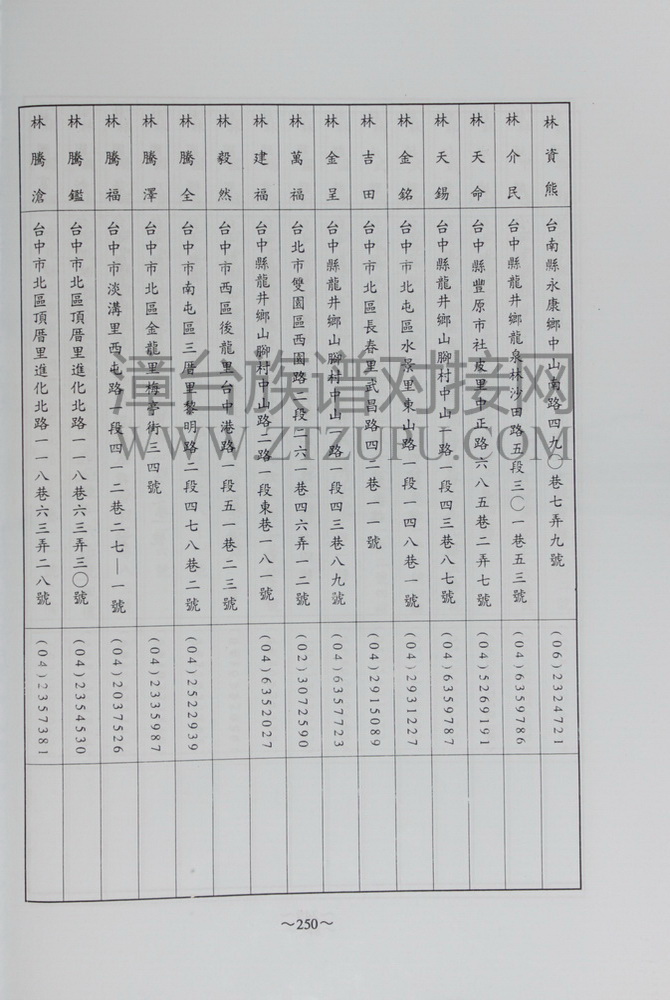 林資熊 台南縣永康鄉中山南路四九〇巷七弄九號 (06)2324721
林介民 台中縣龍井鄉龍泉林沙田路五段三〇一巷五三號 (04)6359786
林天命 台中縣豐原市社皮里中正路六八五巷二弄七號 (04)5269191
林天錫 台中縣龍井鄉山腳村中山一路一段四三巷八七號 (04)6359787
林金銘 台中市北屯區水景里東山路一段一四八巷一號 (04)2931227
林吉田 台中市北區長春里武昌路四二巷一一號 (04)2915089
林金呈 台中縣龍井鄉山腳村中山一路一段四三巷八九號 (04)6357723
林萬福 台北市雙園區西園路二段二六一巷四六弄一二號 (02)3072590
林建福 台中縣龍井鄉山腳村中山路二路一段東巷一八一號 (04)6352027
林毅然 台中市西區後龍里台中港路一段五一巷二三號
林騰全 台中市南屯區三厝里黎明路二段四七八巷二號 (04)2522939
林騰澤 台中市北區金龍里梅亭街三四號 (04)2335987
林騰福 台中市淡溝里西屯路一段四一二巷二七—一號 (04)2037526
林騰鑑 台中市北區頂厝里進化北路一一八巷六三弄三〇號 (04)2354530
林騰滄 台中市北區頂厝里進化北路一一八巷六三弄二八號 (04)2357381
漳台族谱对接网
WWW.ZTZUPU.COM
～250～